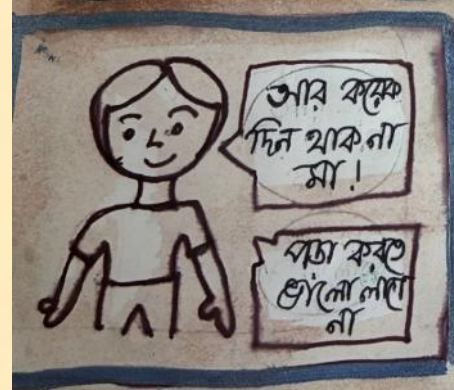 আর কয়েক
দিন থাক না
মা !
পড়া করতে
ভালো লাগে
না